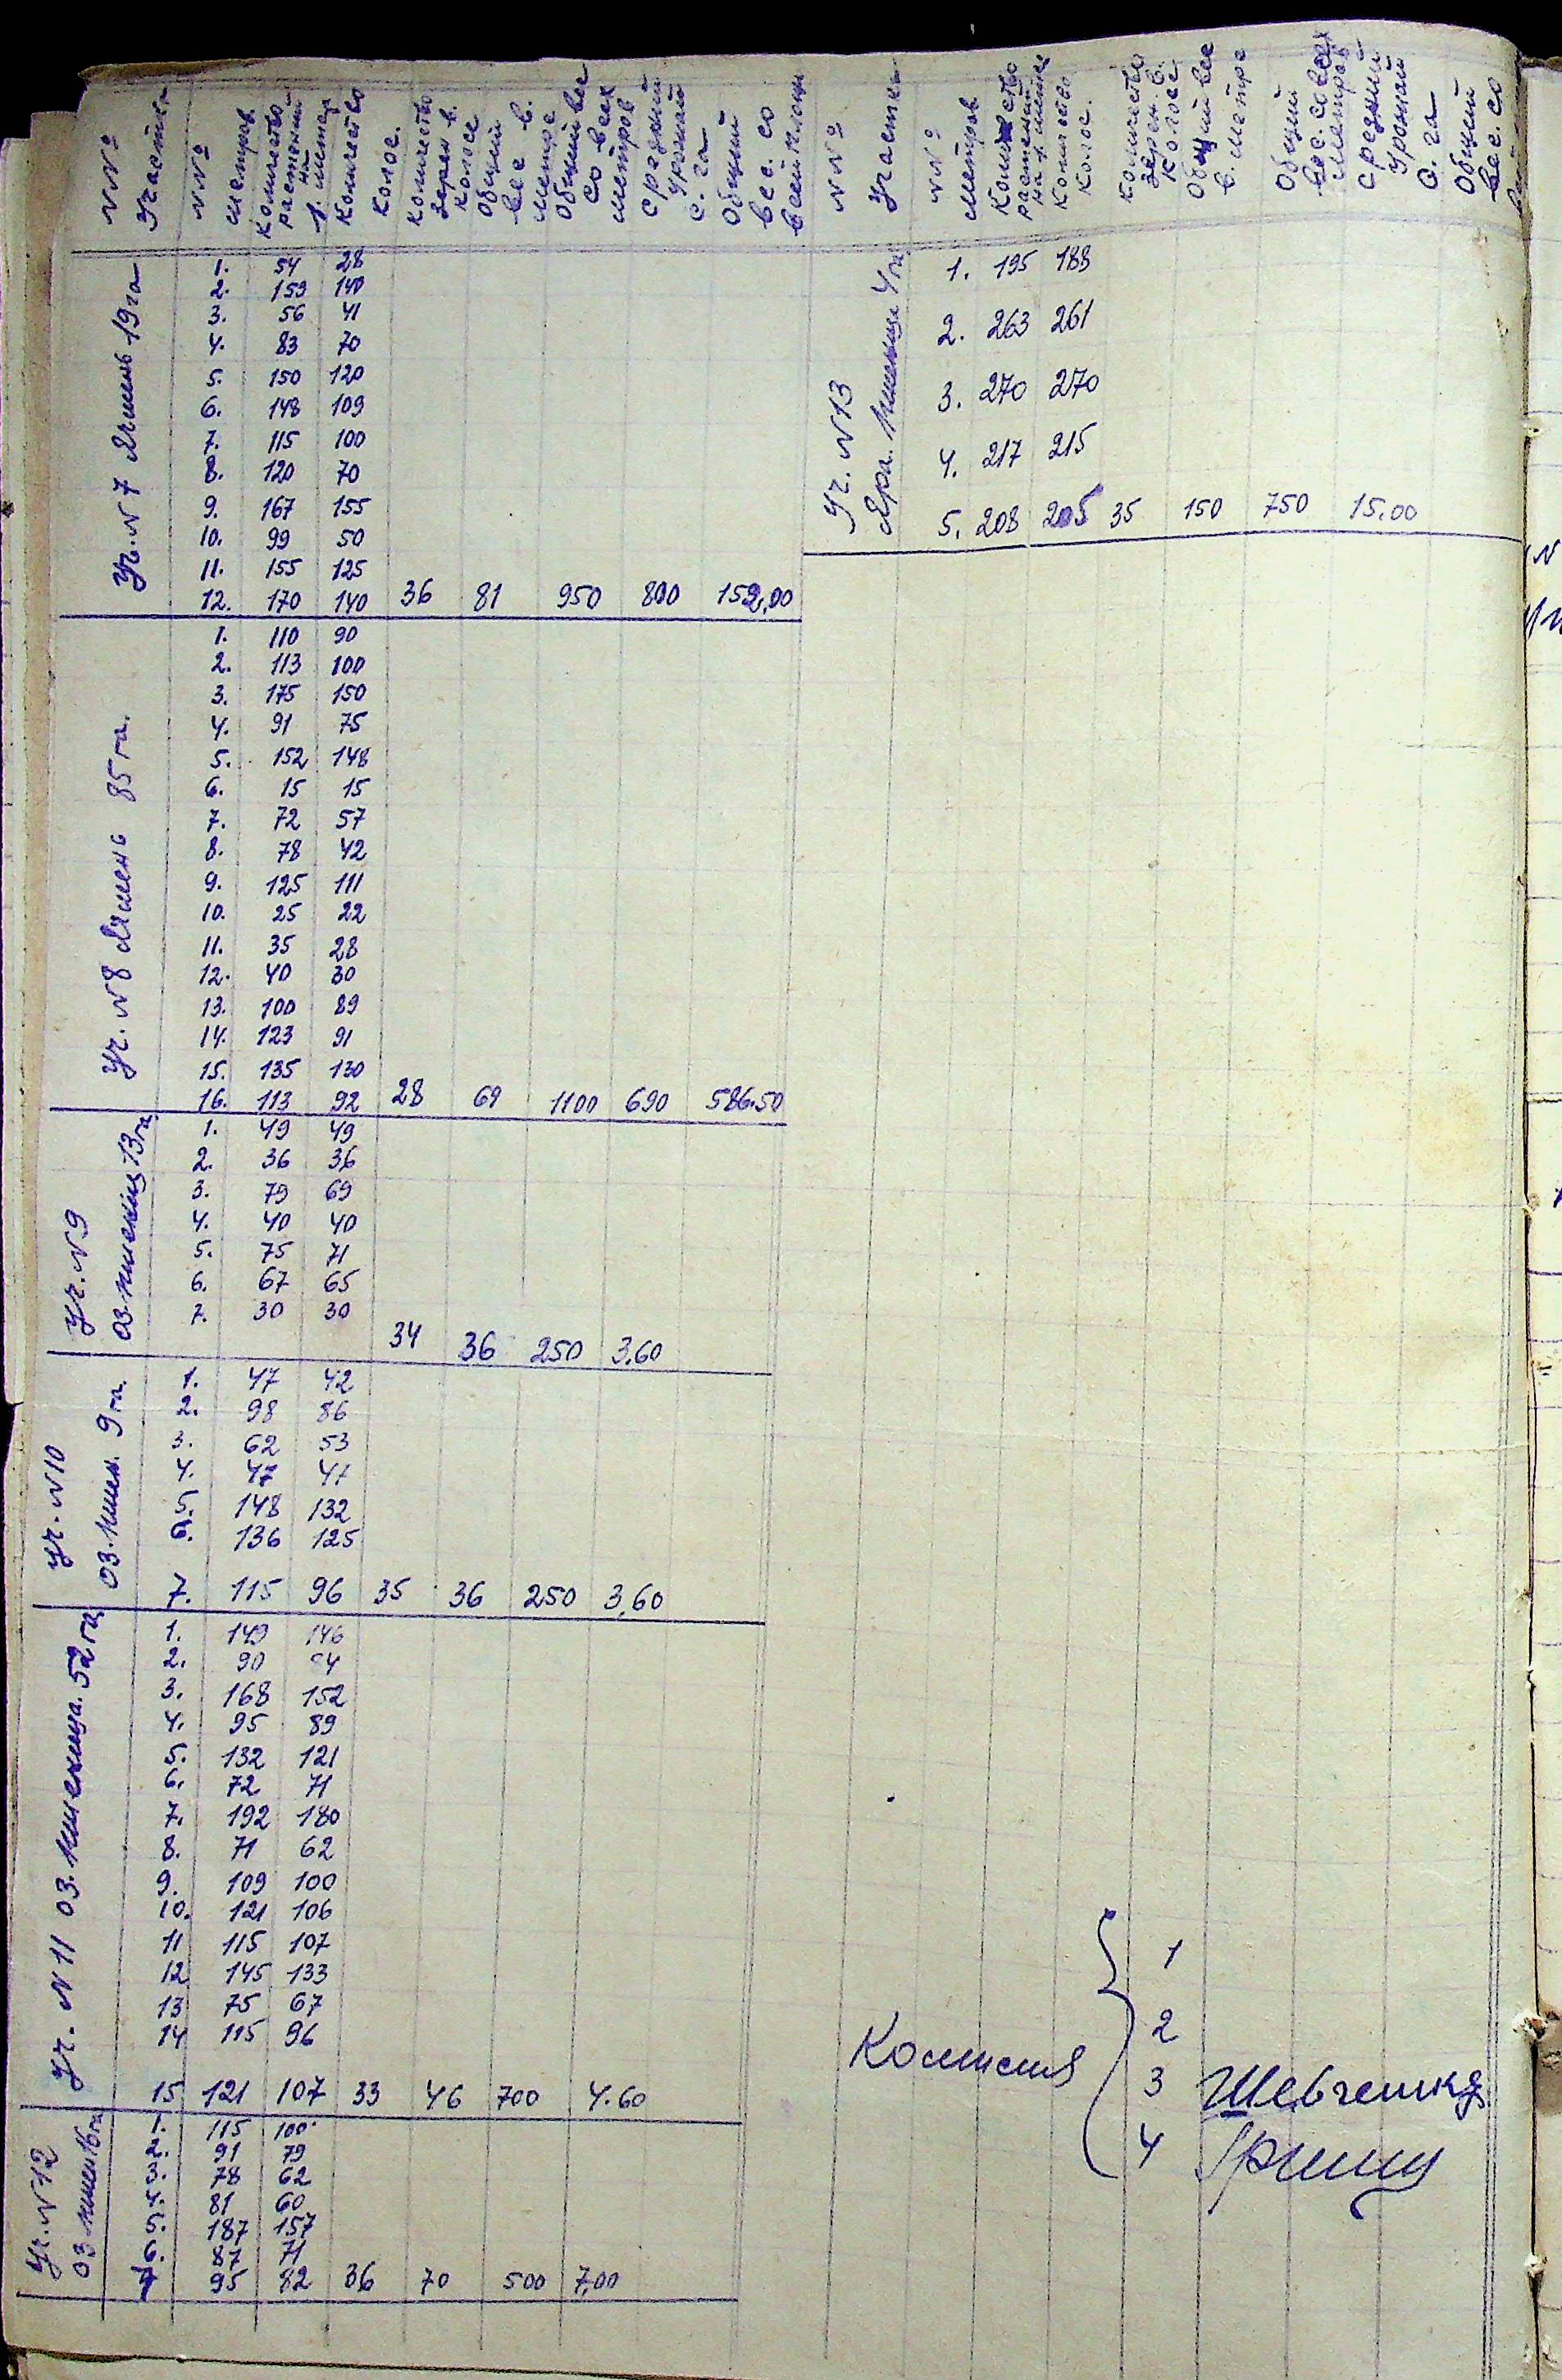 №№ Участка | №№ метров. | Количество растений на 1. метр | Количество Колос. | Количество зерен в. Колосе | Общий вес в. метре | Общий вес со всех метров | Средний урожай с. га | Общий вес. со всей площ
Уч. №7 Ячмень 19 га
1. 54 28
2. 159 140
3. 56 41
4. 83 70
5. 150 120
6. 148 109
7. 115 100
8. 120 70
9. 167 155
10. 99 50
11. 155 125
12. 170 140 36 81 950 800 152,00
Уч. №8 Ячмень 85 га.
1. 110 90
2. 113 100
3. 175 150
4. 91 75
5. 152 148
6. 15 15
7. 72 57
8. 78 42
9. 125 111
10. 25 22
11. 35 28
12. 40 30
13. 100 89
14. 123 91
15. 135 130
16. 113 92 28 69 1100 690 586.50
Уч. №9
оз. пшеница 13 га
1. 49 49
2. 36 36
3. 79 69
4. 40 40
5. 75 71
6. 67 65
7. 30 30
34 36 250 3.60
Уч. №10
Оз. пшен. 9 га.
1. 47 42
2. 98 86
3. 62 53
4. 47 41
5. 148 132
6. 136 125
7. 115 96 35 36 250 3.60
Уч. №11 Оз. пшеница. 52 га
1. 149 146
2. 90
3. 168 152
4. 95 89
5. 132 121
6. 72 71
7. 192 180
8. 71 62
9. 109 100
10. 121 106
11 115 107
12 145 133
13 75 67
14 115 96
15 121 107 33 46 700 4.60
Уч. №12
Оз пшен 16 га
1. 115 100
2. 91 79
3. 78 62
4. 81 60
5. 187 157
6. 87 71
7 95 82 36 70 500 7,00
№№ Участка | №№ Метров | Количество растений на 1. метре | Количество Колос. | Количество зерен. в. Колосе | Общий вес в. метре | Общий вес. со всех метров | Средний урожай с. га | Общий вес. со
Уч. №13
Яра. Пшеница 4 га
1. 195 188
2. 263 261
3. 270 270
4. 217 215
5. 208 205 35 150 750 15.00
Комиссия
1
2
3 Шевченко
4